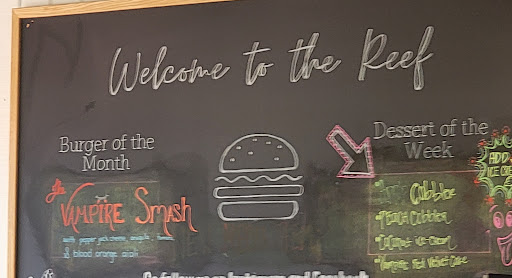 Welcome to the Reef
Burger of the
Month
the
VAMPIRE SMASH
with pepper jack cheese, arugula, tomato,
& blood orange aioli
Dessert of the
Week
Cobbler
PEACH Cobbler
Coconut ice cream
Vampire Red Velvet Cake
ADD
ICE CRE
Go follow us on Instagram and Facebook